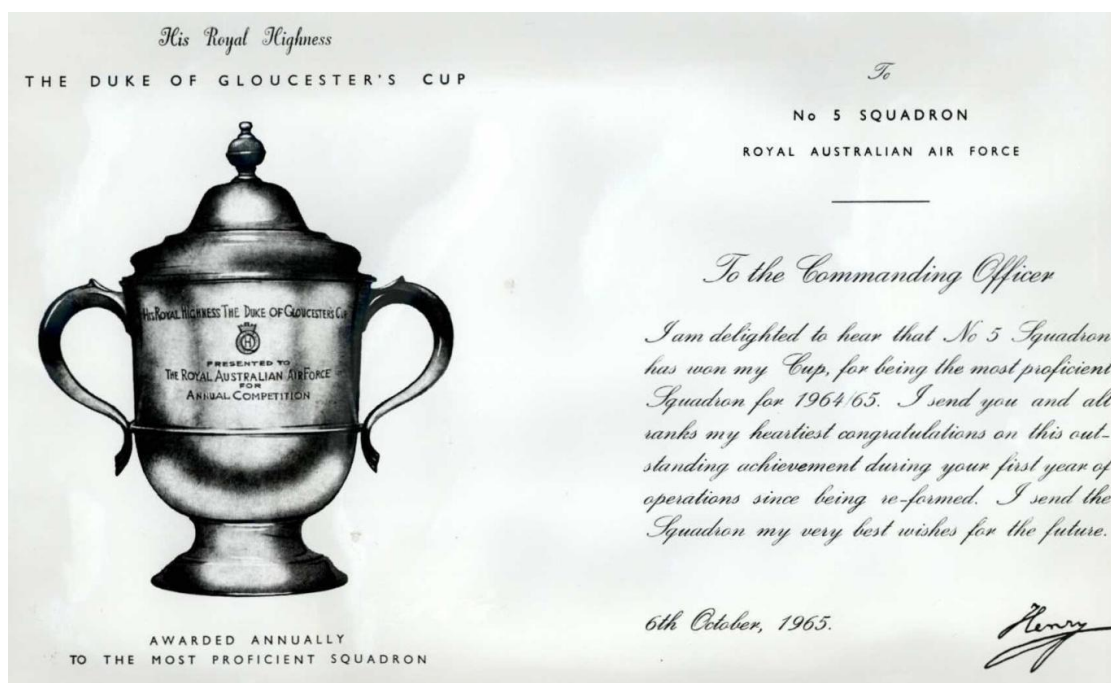 His Royal Highness
THE DUKE OF GLOUCESTER'S CUP
HIS ROYAL HIGHNESS THE DUKE OF GLOUCESTER'S CUP
H
PRESENTED TO
THE ROYAL AUSTRALIAN AIR FORCE
FOR
ANNUAL COMPETITION
AWARDED ANNUALLY
TO THE MOST PROFICIENT SQUADRON
To
No 5 SQUADRON
ROYAL AUSTRALIAN AIR FORCE
To the Commanding Officer
I am delighted to hear that No 5 Squadron
has won my Cup, for being the most proficient
Squadron for 1964/65. I send you and all
ranks my heartiest congratulations on this out-
standing achievement during your first year of
operations since being re-formed. I send the
Squadron my very best wishes for the future.
6th October, 1965.
Henry